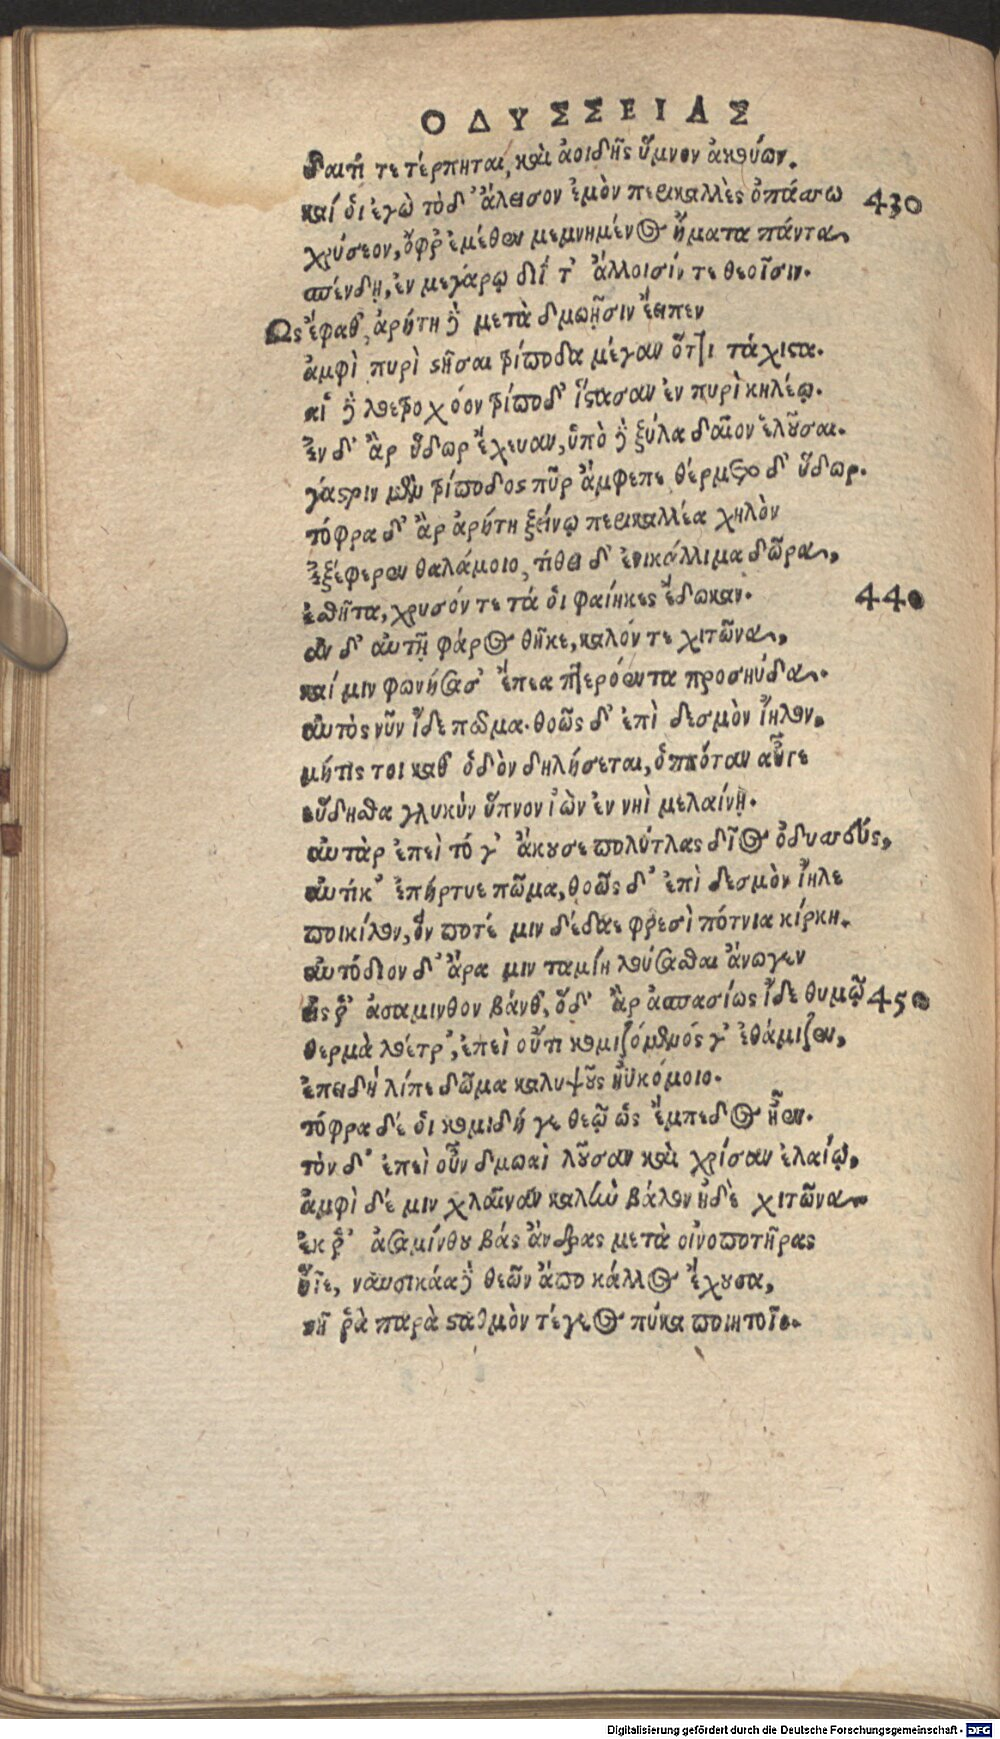 ΟΔΥΣΣΕΙΑΣ
δαιτί τε τέρπηται, καὶ ἀοιδῆς ὕμνον ἀκούων.
καί οἱ ἐγὼ τόδ' ἄλεισον ἐμὸν περικαλλὲς ὀπάσσω 430
χρύσεον, ὄφρ' ἐμέθεν μεμνημένος ἤματα πάντα,
σπένδῃ, ἐν μεγάρῳ διΐ τ' ἄλλοισίν τε θεοῖσιν.
Ως ἔφαθ', ἀρήτη δὲ μετὰ δμωῇσιν ἔειπεν
ἀμφὶ πυρὶ στῆσαι τρίποδα μέγαν ὅττι τάχιστα.
αἱ δὲ λοετροχόον τρίποδ' ἵστασαν ἐν πυρὶ κηλέῳ.
ἐν δ' ἂρ ὕδωρ ἔχευαν, ὑπὸ δὲ ξύλα δαῖον ἑλοῦσαι.
γάστριν μὲν τρίποδος πῦρ ἄμφεπε θέρμετο δ' ὕδωρ.
τόφρα δ' ἂρ ἀρήτη ξείνῳ περικαλλέα χηλὸν
ἐξέφερεν θαλάμοιο, τίθει δ' ἐνικάλλιμα δῶρα,
ἐσθῆτα, χρυσόν τε τά οἱ φαίηκες ἔδωκαν. 440
ἐν δ' αὐτῇ φᾶρος θῆκε, καλόν τε χιτῶνα,
καί μιν φωνήσασ' ἔπεα πτερόεντα προσηύδα.
αὐτὸς νῦν ἴδε πῶμα. θοῶς δ' ἐπὶ δεσμὸν ἴηλον,
μήτίς τοι καθ' ὁδὸν δηλήσεται, ὁππόταν αὖτε
εὕδησθα γλυκὺν ὕπνον ἰὼν ἐν νηῒ μελαίνῃ.
αὐτὰρ ἐπεὶ τό γ' ἄκουσε πολύτλας δῖος ὀδυσσεύς,
αὐτίκ' ἐπήρτυε πῶμα, θοῶς δ' ἐπὶ δεσμὸν ἴηλε
ποικίλον, ὅν ποτέ μιν δέδαε φρεσὶ πότνια κίρκη.
αὐτόδιον δ' ἄρα μιν ταμίη λούσασθαι ἄνωγεν
ἔς ῥ' ἀσαμινθον βάνθ', ὅδ' ἂρ ἀσπασίως ἴδε θυμῷ 450
θερμὰ λοέτρ', ἐπεὶ οὔτι κομιζόμενός γ' ἐθάμιζεν,
ἐπειδὴ λίπε δῶμα καλυψοῦς ἠϋκόμοιο.
τόφρα δέ οἱ κομιδή γε θεῷ ὣς ἔμπεδος ἦεν.
τὸν δ' ἐπεὶ οὖν δμωαὶ λοῦσαν καὶ χρίσαν ἐλαίῳ,
ἀμφὶ δέ μιν χλαῖναν καλὴν βάλον ἠδὲ χιτῶνα
ἐκ ῥ' ἀσαμίνθου βάς ἄνδρας μετὰ οἰνοποτῆρας
ἤϊε, ναυσικάα δὲ θεῶν ἄπο κάλλος ἔχουσα,
στῆ ῥὰ παρὰ σταθμὸν τέγεος πύκα ποιητοῖο.
Digitalisierung gefördert durch die Deutsche Forschungsgemeinschaft - DFG